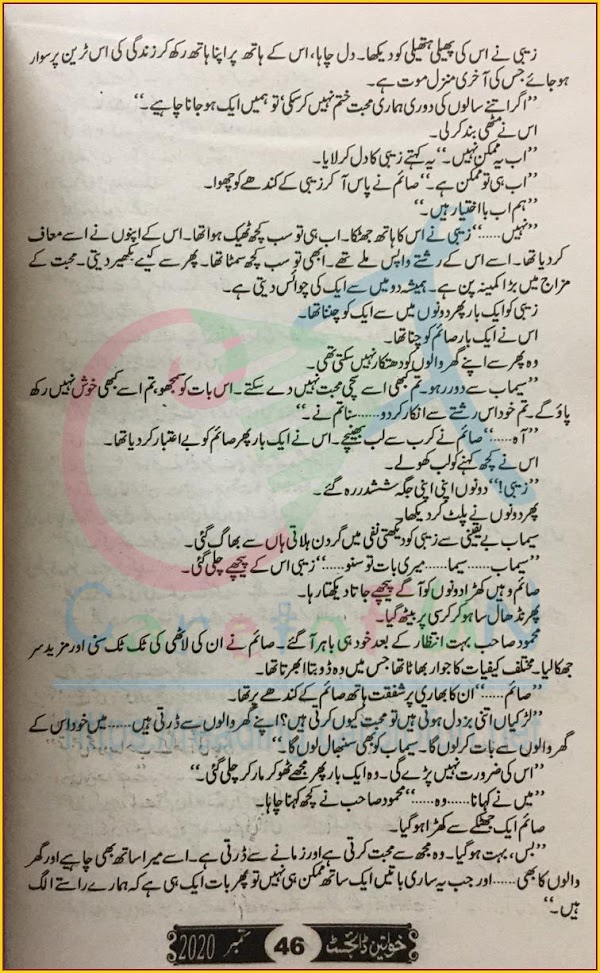 زیبی نے اس کی پھیلی ہتھیلی کو دیکھا۔ دل چاہا، اس کے ہاتھ پر اپنا ہاتھ رکھ کر زندگی کی اس ٹرین پر سوار
ہو جائے جس کی آخری منزل موت ہے۔
”اگر اتنے سالوں کی دوری ہماری محبت ختم نہیں کر سکی‘ تو ہمیں ایک ہو جانا چاہیے۔“
اس نے مٹھی بند کر لی۔
”اب یہ ممکن نہیں۔“ یہ کہتے زیبی کا دل کرلایا۔
”اب ہی تو ممکن ہے۔“ صائم نے پاس آ کر زیبی کے کندھے کو چھوا۔
”ہم اب با اختیار ہیں۔“
”نہیں……“ زیبی نے اس کا ہاتھ جھٹکا۔ اب ہی تو سب کچھ ٹھیک ہوا تھا۔ اس کے اپنوں نے اسے معاف
کر دیا تھا۔ اسے اس کے رشتے واپس ملے تھے۔ ابھی تو سب کچھ سمٹا تھا۔ پھر سے کیسے بکھیر دیتی۔ محبت کے
مزاج میں بڑا کمینہ پن ہے۔ ہمیشہ دو میں سے ایک کی چوائس دیتی ہے۔
زیبی کو ایک بار پھر دونوں میں سے ایک کو چننا تھا۔
اس نے ایک بار صائم کو چنا تھا۔
وہ پھر سے اپنے گھر والوں کو دھتکار نہیں سکتی تھی۔
”سیماب سے دور رہو۔ تم کبھی اسے سچی محبت نہیں دے سکتے۔ اس بات کو سمجھو، تم اسے کبھی خوش نہیں رکھ
پاؤ گے۔ تم خود اس رشتے سے انکار کر دو…… سنا تم نے۔“
”آہ……“ صائم نے کرب سے لب بھینچے۔ اس نے ایک بار پھر صائم کو بے اعتبار کر دیا تھا۔
اس نے کچھ کہنے کو لب کھولے۔
”زیبی!“ دونوں اپنی اپنی جگہ ششدر رہ گئے۔
پھر دونوں نے پلٹ کر دیکھا۔
سیماب بے یقینی سے زیبی کو دیکھتی نفی میں گردن ہلاتی ہاں سے بھاگ گئی۔
”سیماب…… سیما…… میری بات تو سنو……“ زیبی اس کے پیچھے چلی گئی۔
صائم وہیں کھڑا دونوں کو آگے پیچھے جاتا دیکھتا رہا۔
پھر نڈھال سا ہو کر کرسی پر بیٹھ گیا۔
محمود صاحب بہت انتظار کے بعد خود ہی باہر آ گئے۔ صائم نے ان کی لاٹھی کی ٹک ٹک سنی اور مزید سر
جھکا لیا۔ مختلف کیفیات کا جوار بھاٹا تھا جس میں وہ ڈوبتا ابھرتا تھا۔
”صائم……“ ان کا بھاری پر شفقت ہاتھ صائم کے کندھے پر تھا۔
”لڑکیاں اتنی بزدل ہوتی ہیں تو محبت کیوں کرتی ہیں؟ اپنے گھر والوں سے ڈرتی ہیں…… میں خود اس کے
گھر والوں سے بات کر لوں گا۔ سیماب کو بھی سنبھال لوں گا۔“
”اس کی ضرورت نہیں پڑے گی۔ وہ ایک بار پھر مجھے ٹھوکر مار کر چلی گئی۔“
”میں نے کہا نا…… وہ……“ محمود صاحب نے کچھ کہنا چاہا۔
صائم ایک جھٹکے سے کھڑا ہو گیا۔
”بس، بہت ہو گیا۔ وہ مجھ سے محبت کرتی ہے اور زمانے سے ڈرتی ہے۔ اسے میرا ساتھ بھی چاہیے اور گھر
والوں کا بھی…… اور جب یہ ساری باتیں ایک ساتھ ممکن ہی نہیں تو پھر بات ایک ہی ہے کہ ہمارے راستے الگ
ہیں۔“
خواتین ڈائجسٹ 46 ستمبر 2020